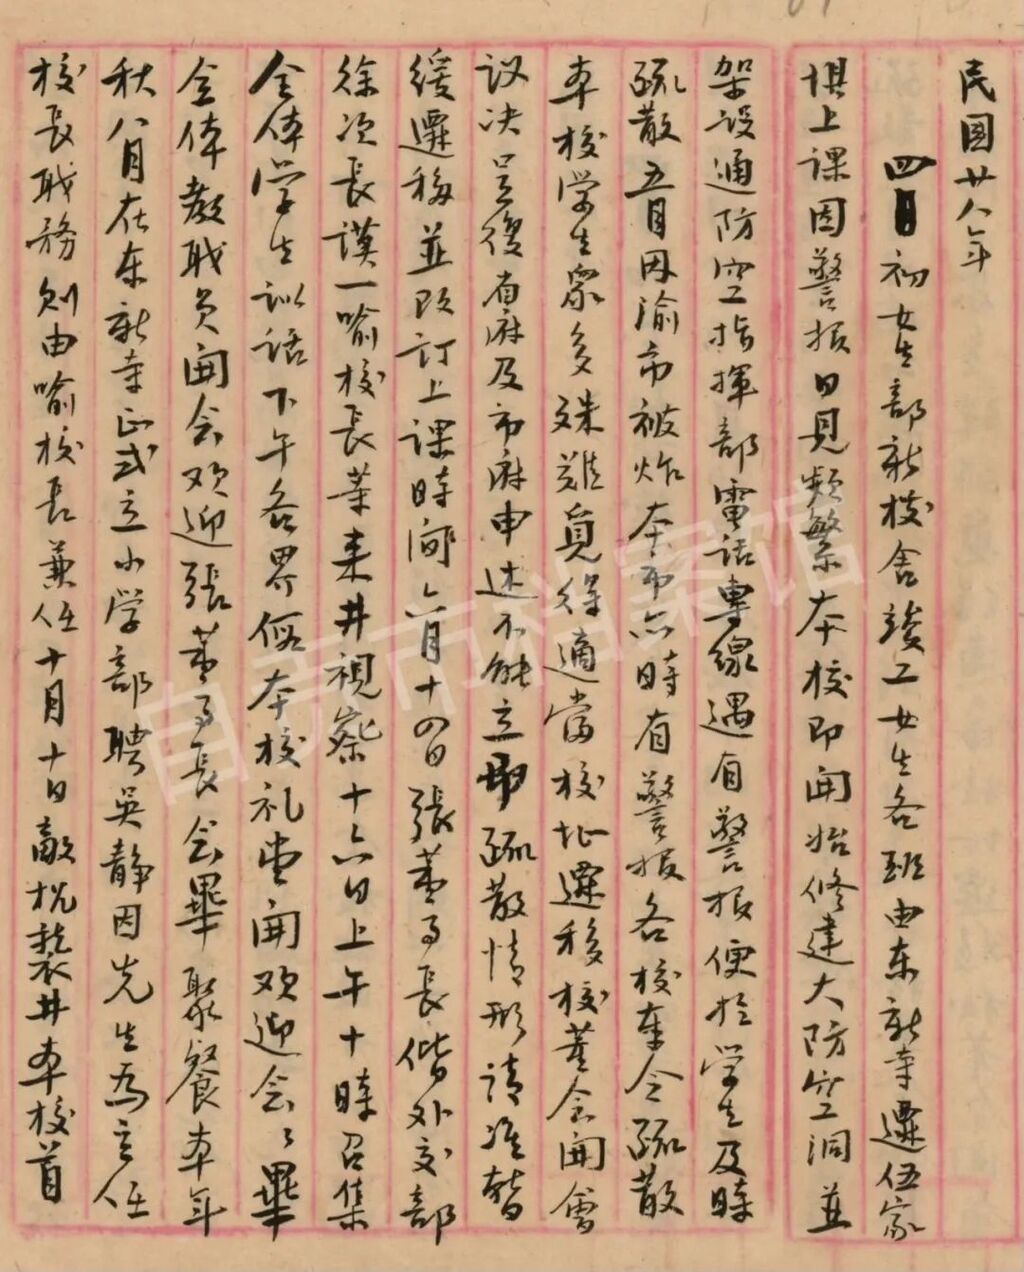 民國廿八年
四■初女生部新校舍竣工女生各班由东新寺遷伍家
坝上课因警报日見頻繁本校即開始修建大防空洞並
架設通防空指揮部電话專線遇有警报便於学生及時
疏散五月因渝市被炸本市亦時有警报各校奉令疏散
本校学生眾多殊難覓得適當校址遷移校董会開會
议决呈復省府及市府申述不能立即疏散情形请准暫
缓遷移並改订上课時间六月十四日張董事長偕外交部
徐次長謨一喻校長葉来井視察十六日上午十時召集
全体学生训话下午各界假本校礼堂開欢迎会会畢
全体教职员開会欢迎張董事長会畢聚餐本年
秋八月在东新寺正式立小学部聘吳静因先生為主任
校長职務则由喻校長兼任十月十日敵机袭井本校首
自贡市档案馆